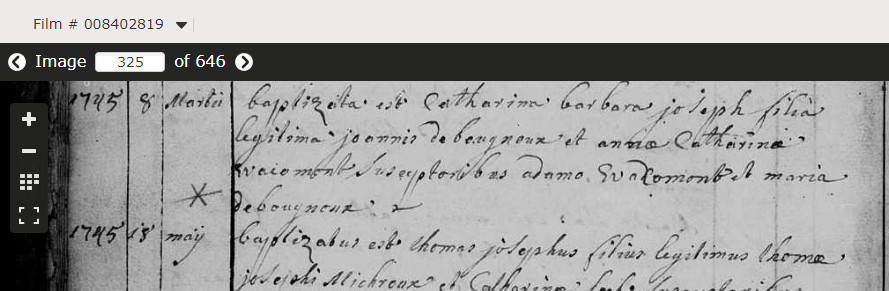 Film # 008402819
Image 325 of 646
1745 8 Martii baptizata est Catharina barbara joseph filia
legitima joannis debougnoux et annæ Catharinæ
Wacomont Susceptoribus adamo Wacomont et maria
debougnoux
1745 18 maÿ baptizatus est thomas josephus filius legitimus thomæ
josephi Michroux et Catharinæ